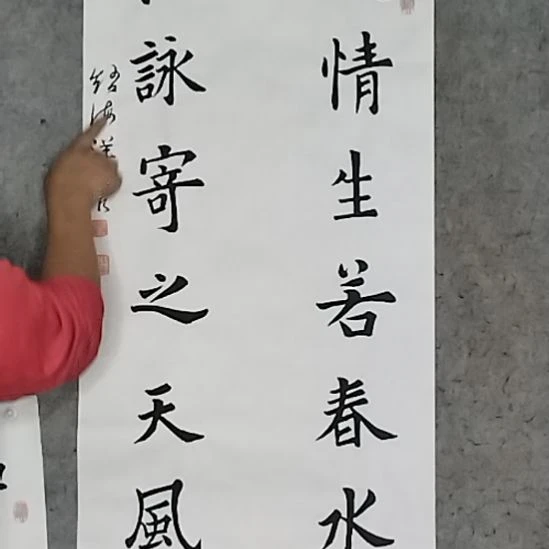 情生若春水
詠寄之天風